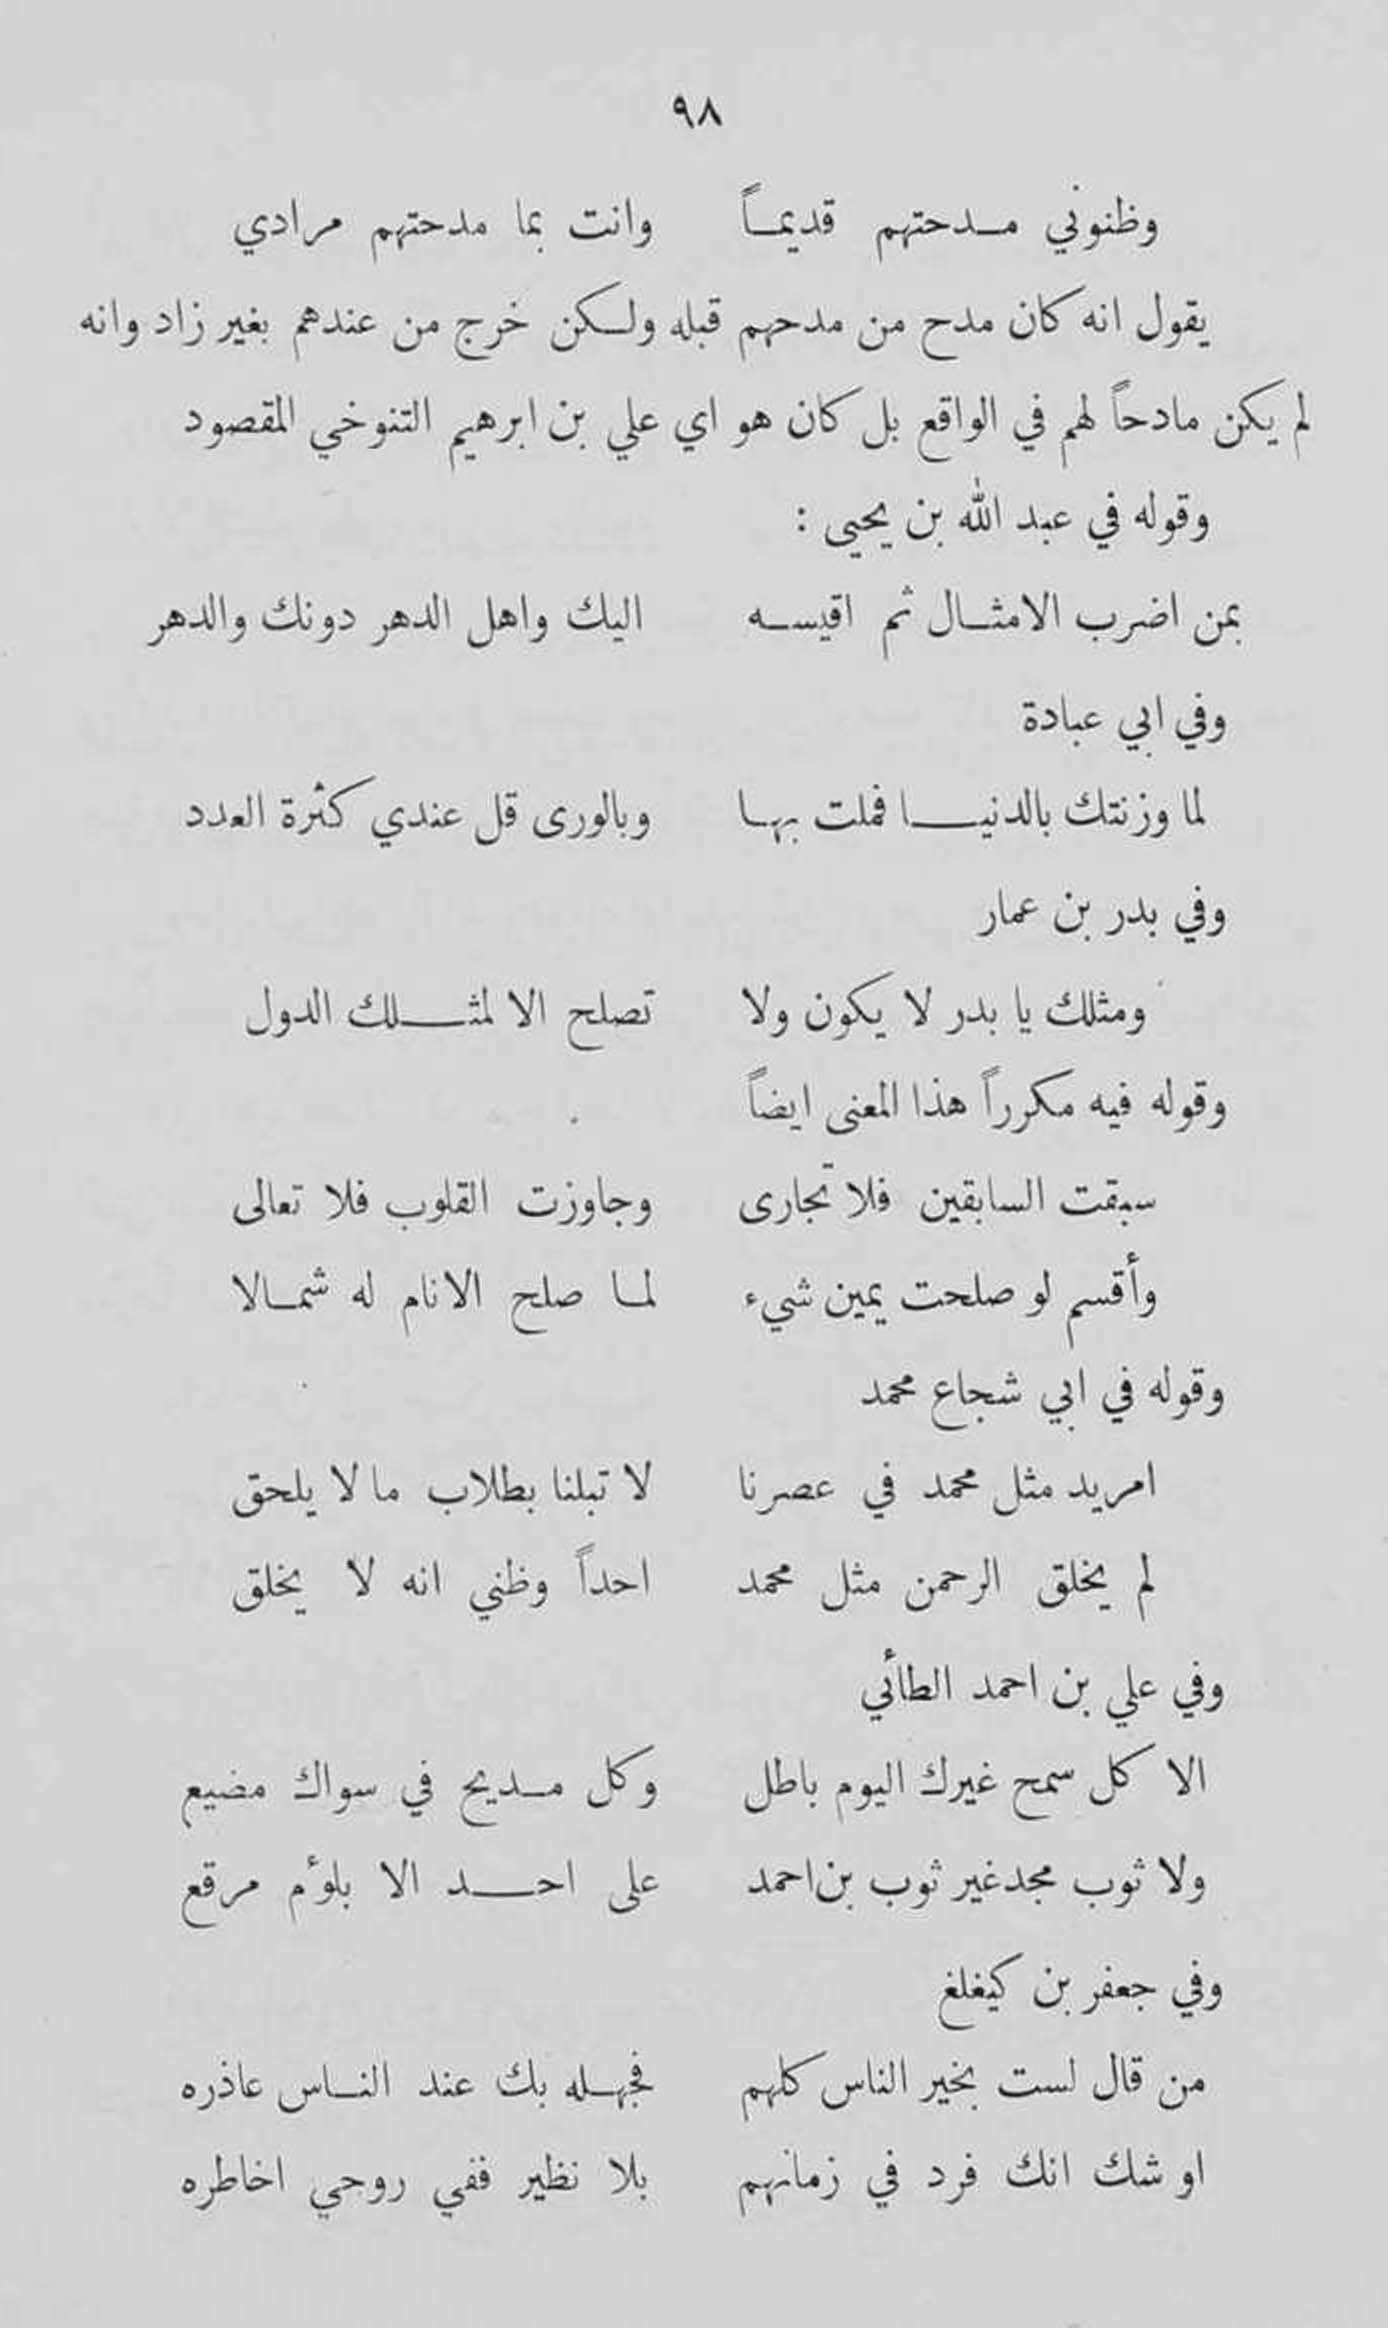 ٩٨
وظنوني مدحتهم قديماً وانت بما مدحتهم مرادي
يقول انه كان مدح من مدحهم قبله ولكن خرج من عندهم بغير زاد وانه
لم يكن مادحاً لهم في الواقع بل كان هو اي علي بن ابرهيم التنوخي المقصود
وقوله في عبد الله بن يحيى :
بمن اضرب الامثال ثم اقيسه اليك واهل الدهر دونك والدهر
وفي ابي عبادة
لما وزنتك بالدنيا فملت بها وبالورى قل عندي كثرة العدد
وفي بدر بن عمار
ومثلك يا بدر لا يكون ولا تصلح الا لمثلك الدول
وقوله فيه مكرراً هذا المعنى ايضاً
سبقت السابقين فلا تجارى وجاوزت القلوب فلا تعالى
وأقسم لو صلحت يمين شيء لما صلح الانام له شمالا
وقوله في ابي شجاع محمد
امريد مثل محمد في عصرنا لا تبلنا بطلاب ما لا يلحق
لم يخلق الرحمن مثل محمد احداً وظني انه لا يخلق
وفي علي بن احمد الطائي
الا كل سمح غيرك اليوم باطل وكل مديح في سواك مضيع
ولا ثوب مجد غير ثوب بن احمد على احد الا بلوأم مرقع
وفي جعفر بن كيغلغ
من قال لست بخير الناس كلهم فجهله بك عند الناس عاذره
او شك انك فرد في زمانهم بلا نظير ففي روحي اخاطره